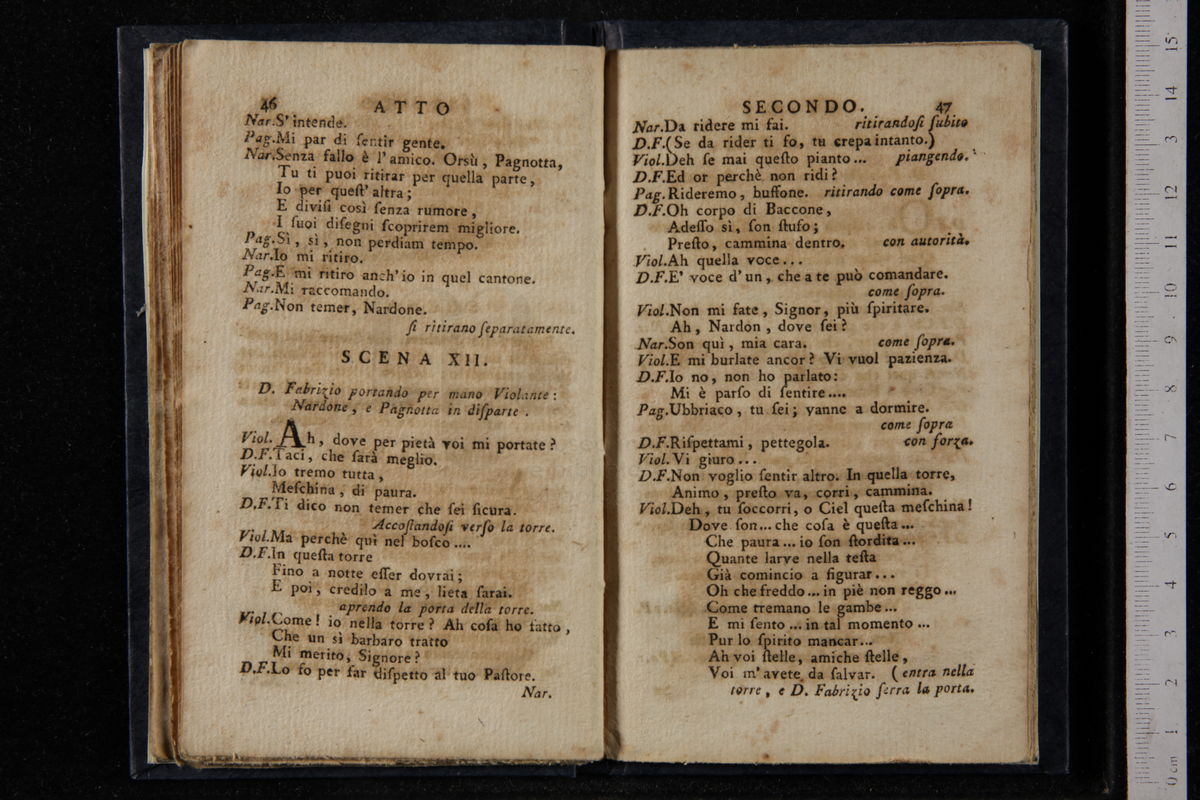 46 ATTO
Nar.S'intende.
Pag.Mi par di ſentir gente.
Nar.Senza fallo è l'amico. Orsù, Pagnotta,
Tu ti puoi ritirar per quella parte,
Io per queſt'altra;
E diviſi così ſenza rumore,
I ſuoi diſegni ſcoprirem migliore.
Pag.Sì, sì, non perdiam tempo.
Nar.Io mi ritiro.
Pag.E mi ritiro anch'io in quel cantone.
Nar.Mi raccomando.
Pag.Non temer, Nardone.
ſi ritirano ſeparatamente.
SCENA XII.
D. Fabrizio portando per mano Violante:
Nardone, e Pagnotta in diſparte.
Viol. Ah, dove per pietà voi mi portate?
D.F.Taci, che ſarà meglio.
Viol.Io tremo tutta,
Meſchina, di paura.
D.F.Ti dico non temer che ſei ſicura.
Accoſtandoſi verſo la torre.
Viol.Ma perchè quì nel boſco ....
D.F.In queſta torre
Fino a notte eſſer dovrai;
E poi, credilo a me, lieta ſarai.
aprendo la porta della torre.
Viol.Come! io nella torre? Ah coſa ho fatto,
Che un sì barbaro tratto
Mi merito, Signore?
D.F.Lo fo per far diſpetto al tuo Paſtore.
Nar.
SECONDO. 47
Nar.Da ridere mi fai. ritirandoſi ſubito
D.F.(Se da rider ti fo, tu crepa intanto.)
Viol.Deh ſe mai queſto pianto... piangendo.
D.F.Ed or perchè non ridi?
Pag.Rideremo, buffone. ritirando come ſopra.
D.F.Oh corpo di Baccone,
Adeſſo sì, ſon ſtufo;
Preſto, cammina dentro. con autorità.
Viol.Ah quella voce...
D.F.E' voce d'un, che a te può comandare.
come ſopra.
Viol.Non mi fate, Signor, più ſpiritare.
Ah, Nardon, dove ſei?
Nar.Son quì, mia cara. come ſopra.
Viol.E mi burlate ancor? Vi vuol pazienza.
D.F.Io no, non ho parlato:
Mi è parſo di ſentire....
Pag.Ubbriaco, tu ſei; vanne a dormire.
come ſopra
D.F.Riſpettami, pettegola. con forza.
Viol.Vi giuro...
D.F.Non voglio ſentir altro. In quella torre,
Animo, preſto va, corri, cammina.
Viol.Deh, tu ſoccorri, o Ciel queſta meſchina!
Dove ſon... che coſa è queſta...
Che paura... io ſon ſtordita...
Quante larve nella teſta
Già comincio a figurar...
Oh che freddo... in piè non reggo...
Come tremano le gambe...
E mi ſento... in tal momento...
Pur lo ſpirito mancar...
Ah voi ſtelle, amiche ſtelle,
Voi m'avete da ſalvar. (entra nella
torre, e D. Fabrizio ſerra la porta.
0 cm 1 2 3 4 5 6 7 8 9 10 11 12 13 14 15